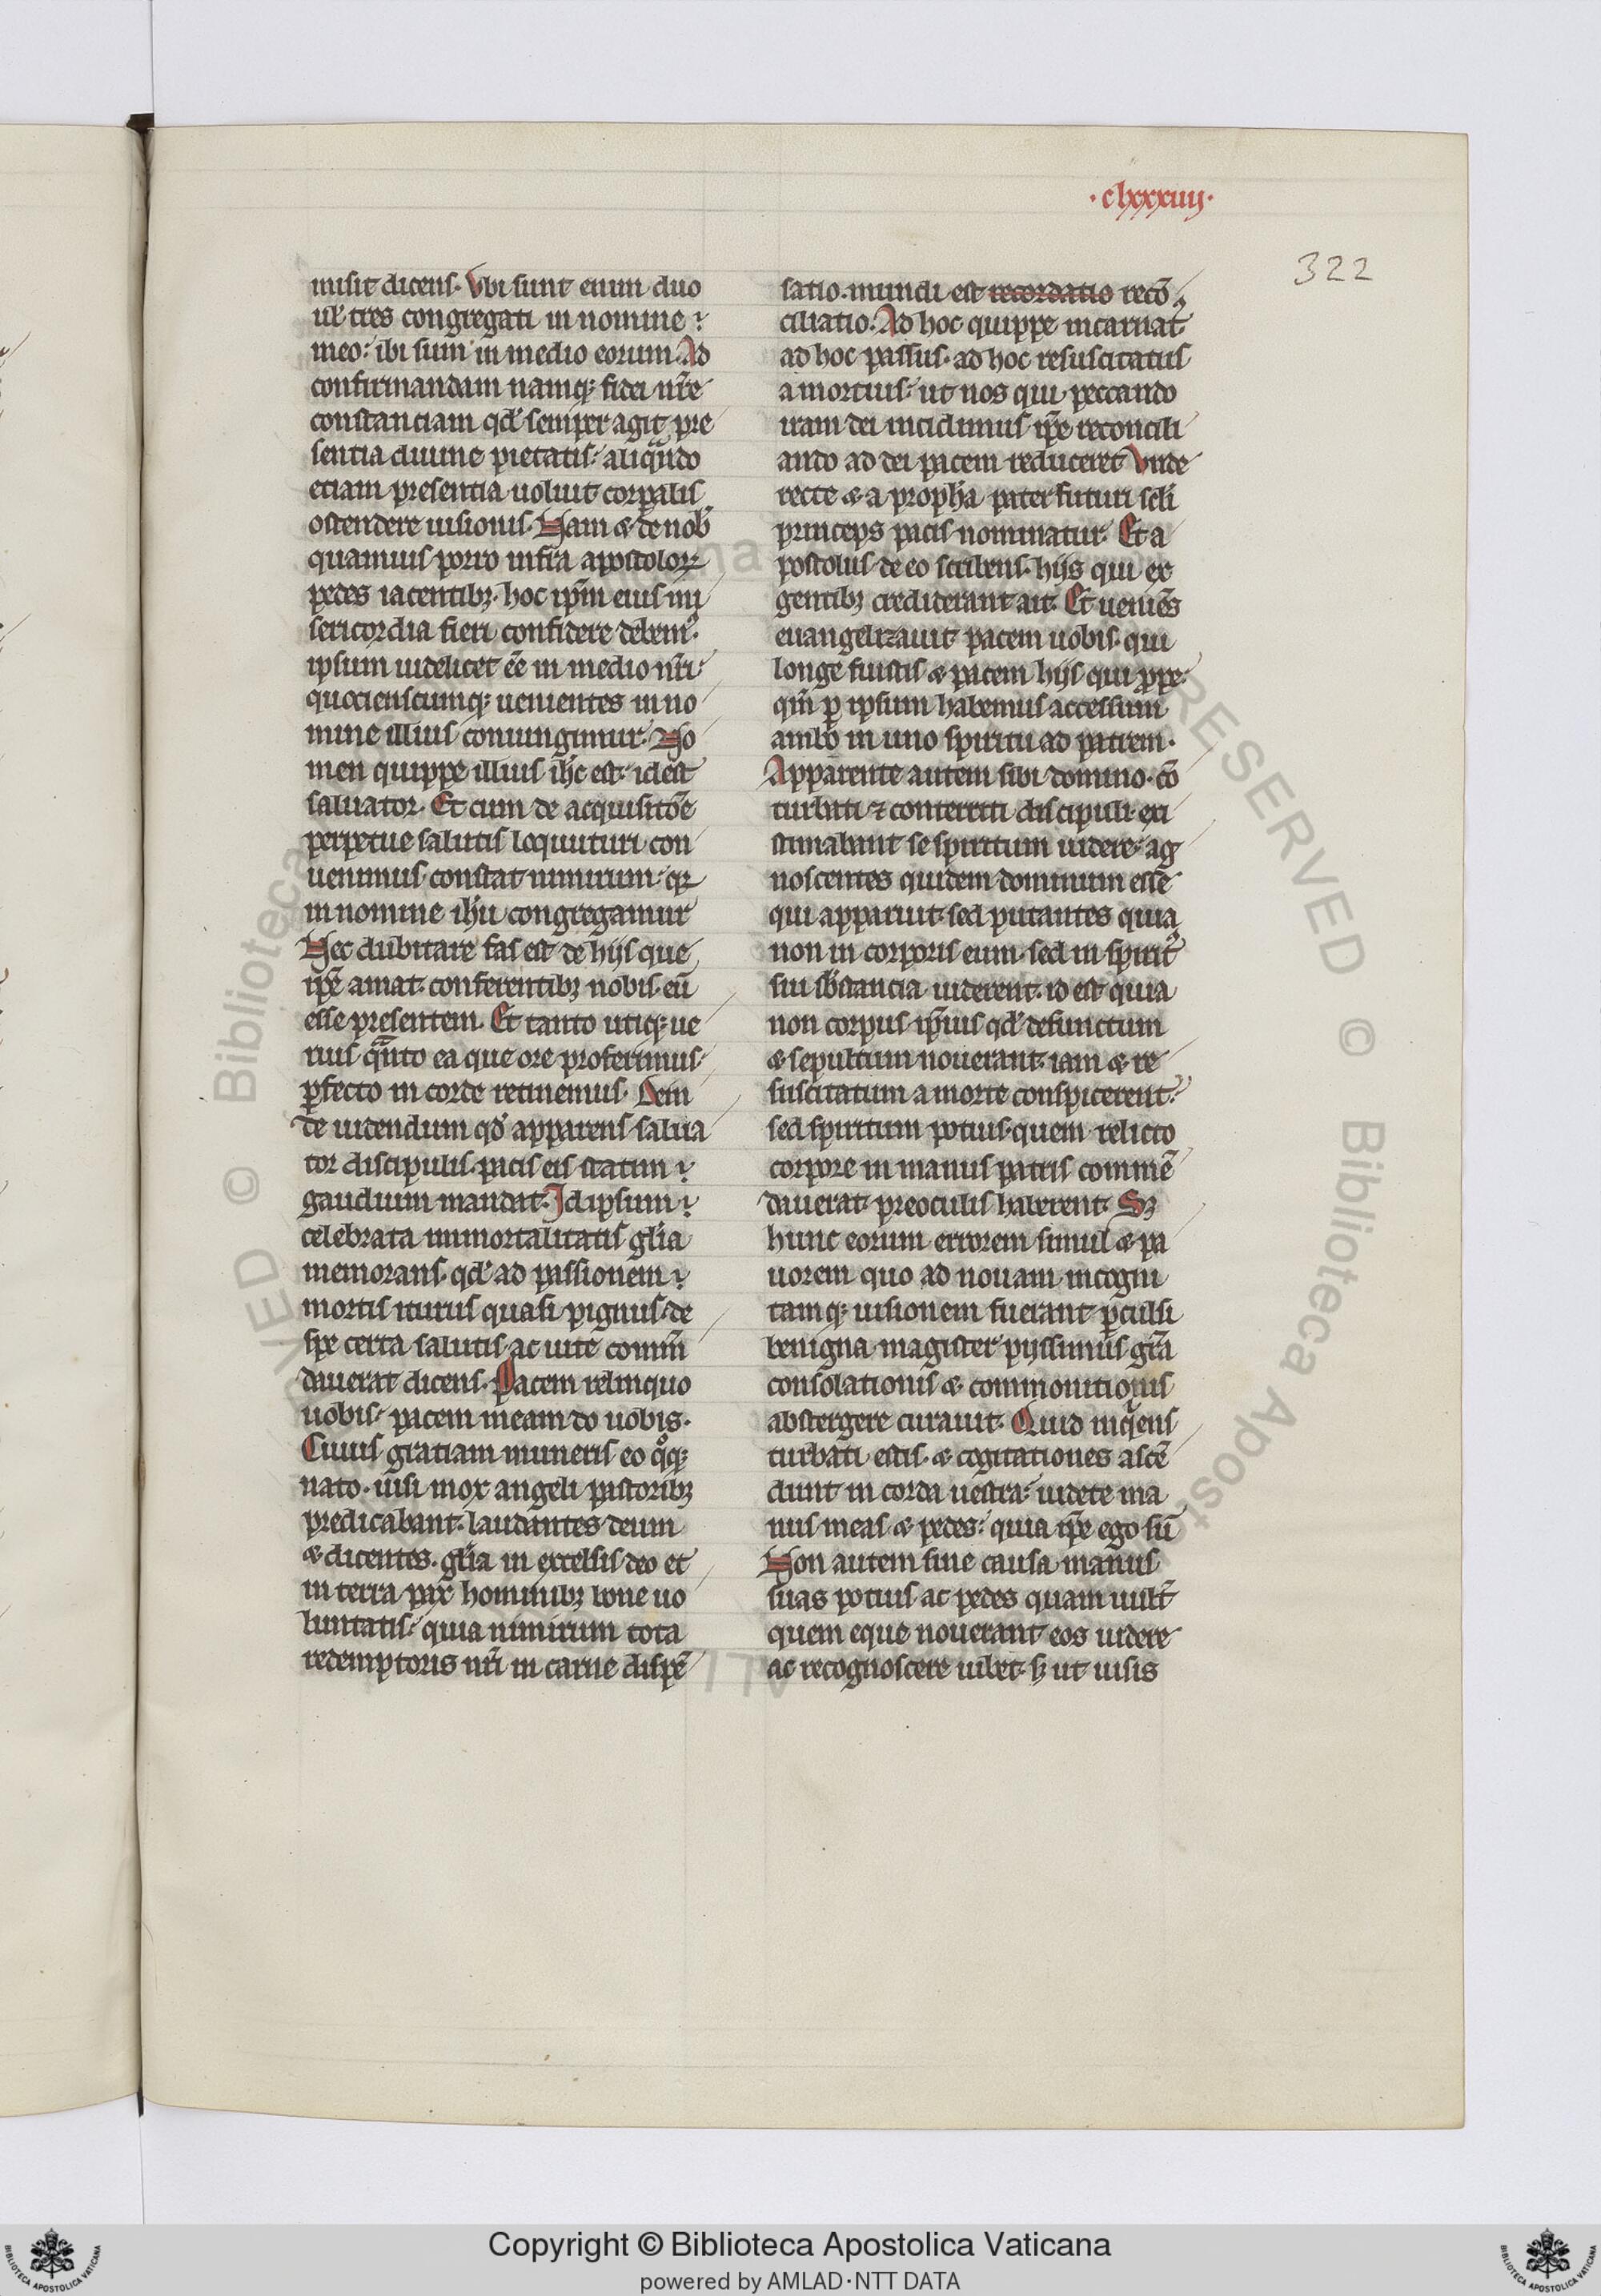 ·clxxxiiij·
322
misit dicens. Vbi sunt enim duo
ul' tres congregati in nomine
meo: ibi sum in medio eorum. Ad
confirmandam namq; fidei nr̄e
constanciam qd' semper agit pre
sentia diuine pietatis: aliqn̄do
etiam presentia uoluit corꝑalis
ostendere uisionis. Nam & de nob
quamuis porro infra apostoloꝝ
pedes iacentibꝫ. hoc ip̄m eius mi
sericordia fieri confidere debem᷒.
ipsum uidelicet ēe in medio nr̄i
quocienscumq; uenientes in no
mine illius coniungimur. No
men quippe illius ih̄c est: id est
saluator. Et cum de acquisitōe
perpetue salutis loquuturi con
uenimus constat nimirum: qꝛ
in nomine ih̄u congregamur
Nec dubitare fas est de hijs que
ip̄e amat. conferentibꝫ nobis. eū
esse presentem. Et tanto utiq; ue
rius qn̄to ea que ore proferimus
ꝑfecto in corde retinemus. Dein
de uidendum qd' apparens salua
tor discipulis. pacis eis statim
gaudium mandat. Id ipsum
celebrata immortalitatis gl'ia
memorans. qd' ad passionem
mortis iturus quasi pignus de
spe certa salutis ac uite comm̄
dauerat dicens. Pacem relinquo
uobis: pacem meam do uobis.
Cuius gratiam muneris eo qͦq;
nato. uisi mox angeli pastoribꝫ
predicabant. laudantes deum
& dicentes. gl'ia in excelsis deo et
in terra pax hominibꝫ bone uo
luntatis: quia nimirum tota
redemptoris nr̄i in carne dispē
satio. mundi est recordatio recō
ciliatio. Ad hoc quippe incarnat᷒
ad hoc passus. ad hoc resuscitatus
a mortuis: ut nos qui peccando
iram dei incidimus ip̄e reconcili
ando ad dei pacem reduceret. Vnde
recte & a proph̄a pater futuri scl'i
princeps pacis nominatur. Et a
postolus de eo scribens. hijs qui ex
gentibꝫ crediderant ait. Et ueniēs
euangelizauit pacem uobis. qui
longe fuistis & pacem hijs qui ꝓpe.
qm̄ ꝑ ipsum habemus accessum
ambo in uno spiritu ad patrem.
Apparente autem sibi domino. cō
turbati ⁊ conterriti discipuli. exi
stimabant se spiritum uidere: ag
noscentes quidem dominum esse
qui apparuit. sed putantes quia
non in corporis eum. sed in spirit᷒
sui sb̄stancia uiderent. id est quia
non corpus ip̄ius qd' defunctum
& sepultum nouerant. iam & re
suscitatum a morte conspicerent.
sed spiritum potius. quem relicto
corpore in manus patris commē
dauerat preoculis haberent. Sꝫ
hunc eorum errorem simul & pa
uorem quo ad nouam incogni
tamq; uisionem fuerant ꝑculsi
benigna magister pijssimus gr̄a
consolationis & commonitionis
abstergere curauit. Quid inquiens
turbati estis. & cogitationes ascē
dunt in corda uestra: uidete ma
nus meas & pedes: quia ip̄e ego sū
Non autem sine causa manus
suas potius ac pedes quam uult̄
quem eque nouerant eos uidere
ac recognoscere iubet. sꝫ ut uisis
Copyright © Biblioteca Apostolica Vaticana
powered by AMLAD·NTT DATA